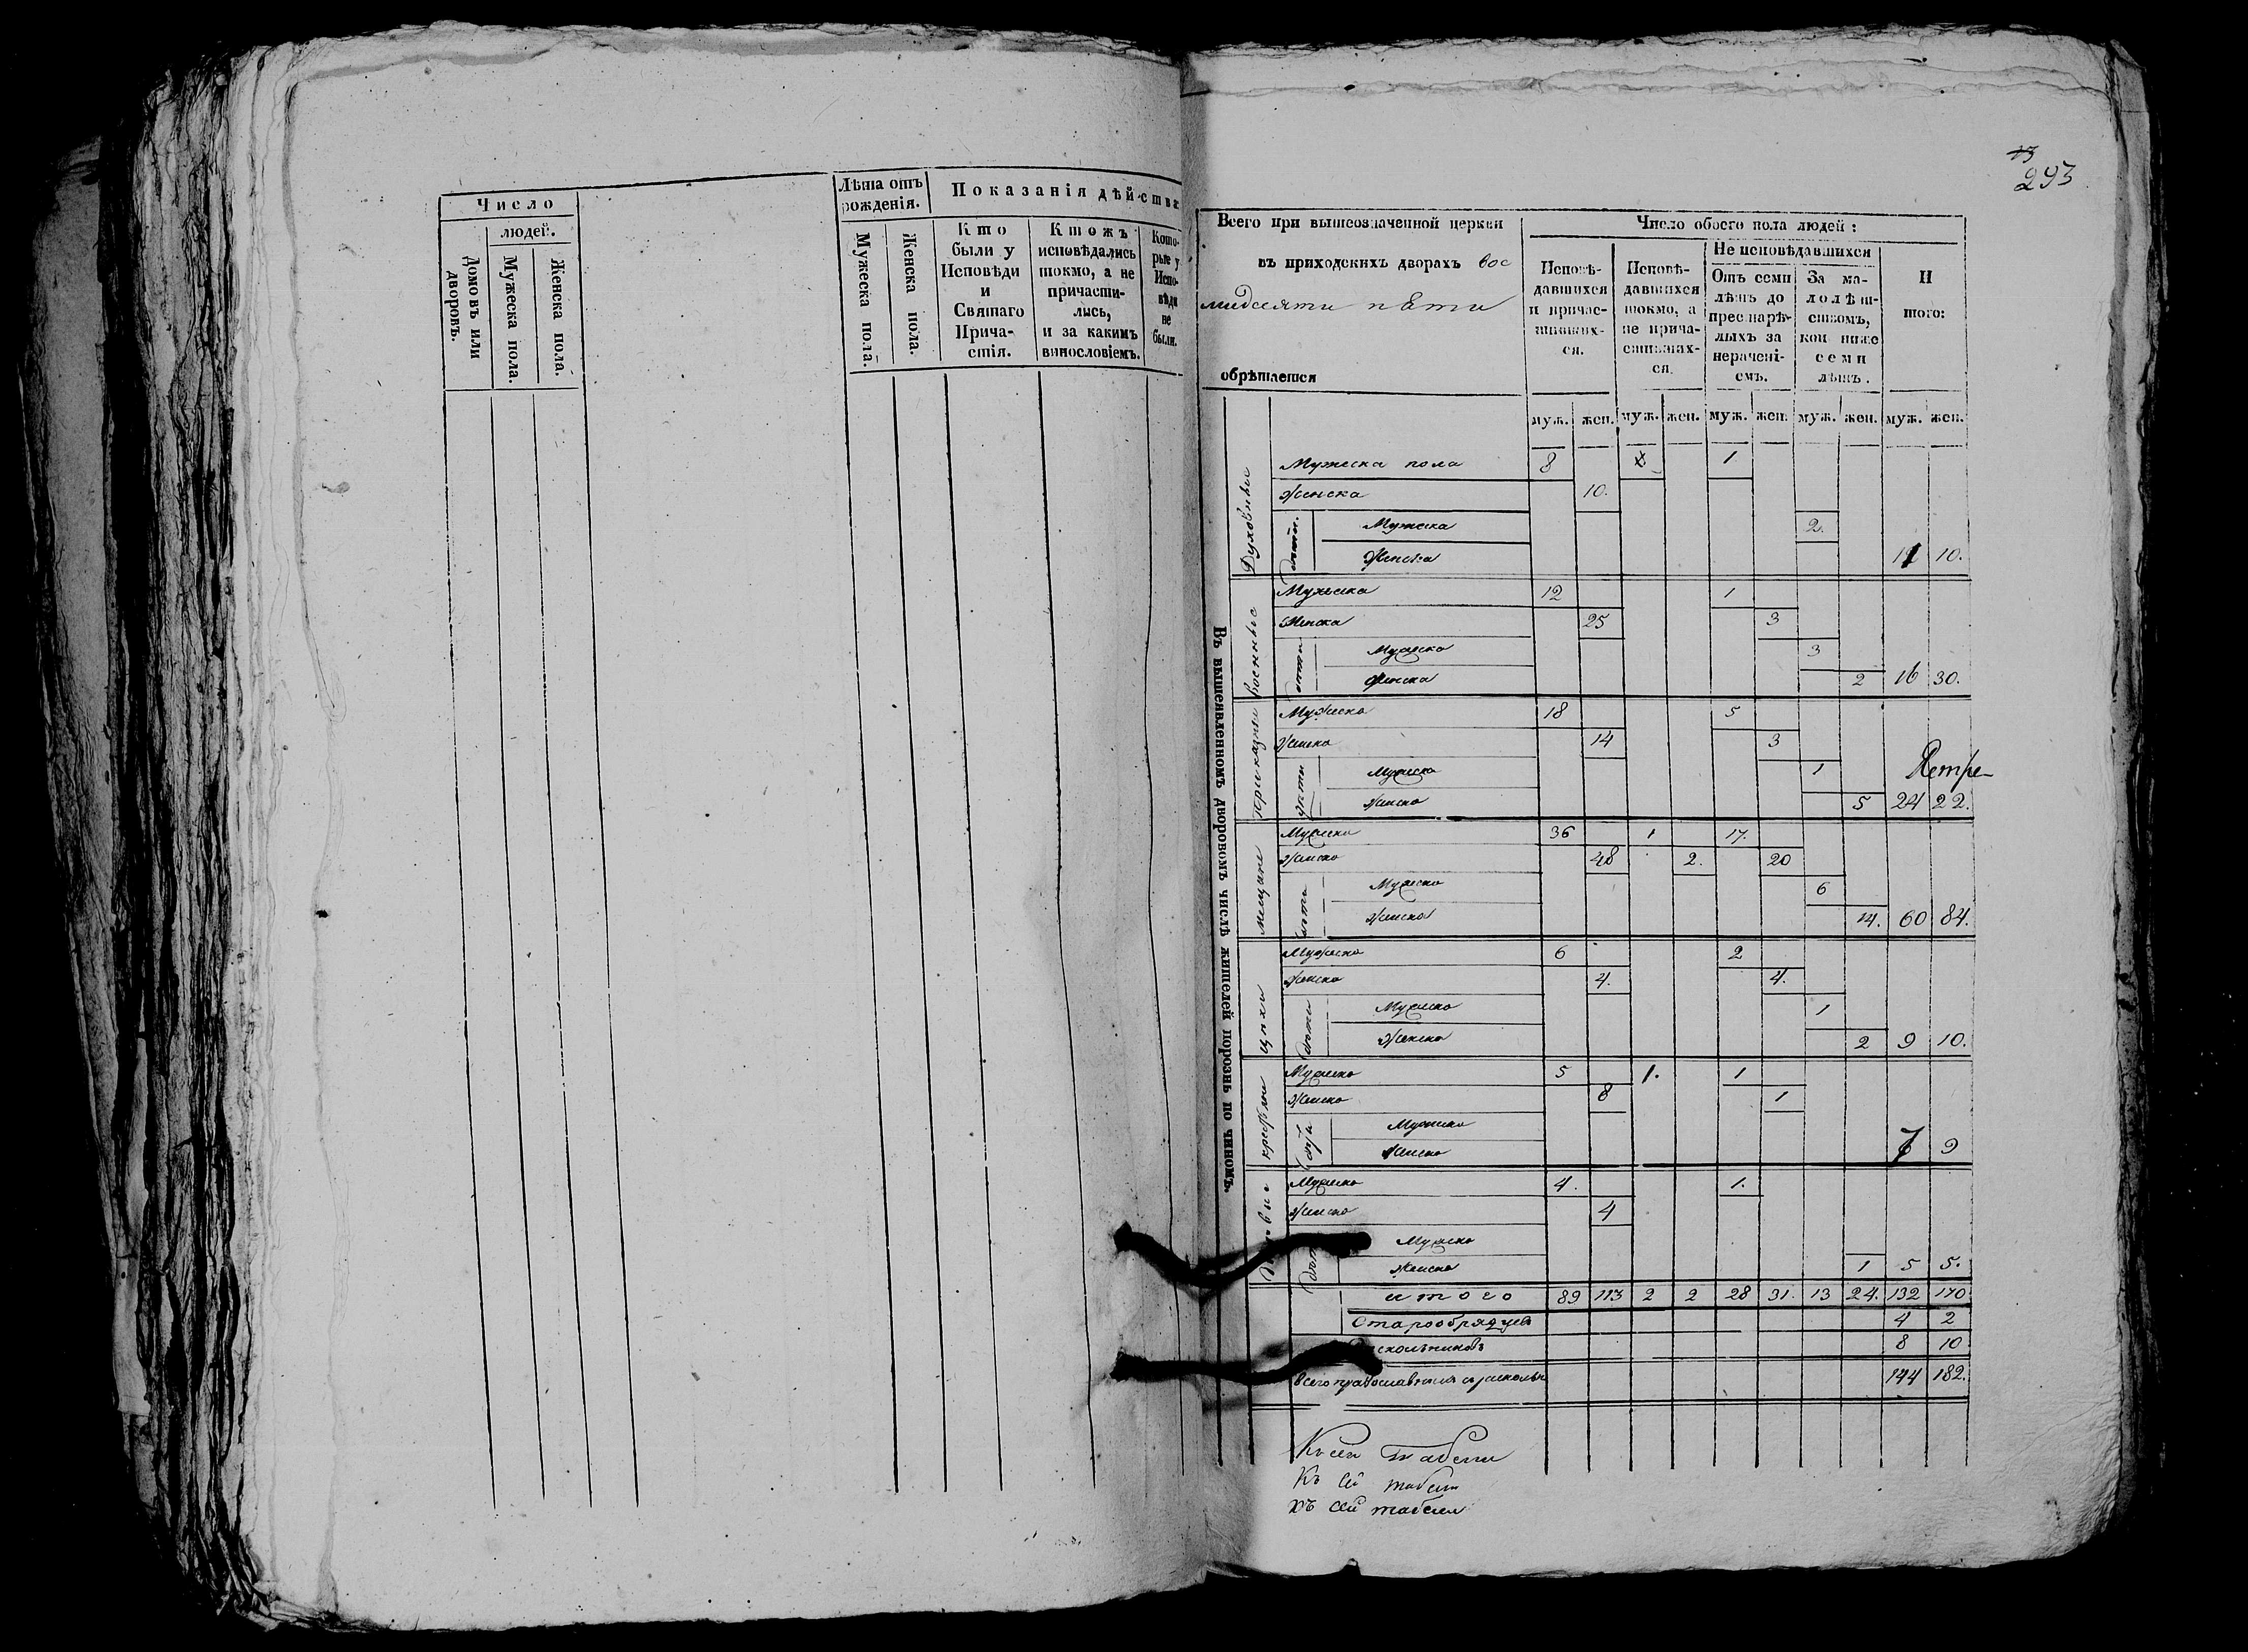 Число
людей.
Домовъ или дворовъ.
Мужеска пола.
Женска пола.
Лѣта отъ рожденія.
Мужеска пола.
Женска пола.
Показанія дѣйства
Кто
были у
Исповѣди
и
Святаго
Прича-
стія.
Ктожъ
исповѣдались
токмо, а не
причасти-
лись,
и за какимъ
винословіемъ.
Кото-
рые у
Испо-
вѣди
не
были.
13
293
Всего при вышеозначенной церкви
въ приходскихъ дворахъ вос
мидесяти пѣти
обрѣтается
Число обоего пола людей:
Исповѣ-
давшихся
и причас-
тившихся.
Исповѣ-
давшихся
токмо, а
не прича-
стившихся.
Не исповѣдавшихся
Отъ семи
лѣтъ до
престарѣ-
лыхъ за
нерачені-
емъ.
За ма-
лолѣт-
ствомъ,
кои ниже
семи
лѣтъ.
И
того:
муж. жен. муж. жен. муж. жен. муж. жен. муж. жен.
Въ вышеявленномъ дворовомъ числѣ жителей порознь по чиномъ.
Духовные
Мужеска пола 8 1
Женска 10.
дѣти.
Мужеска 2.
Женска 11 10.
Военные
Мужеска 12 1
Женска 25 3
дѣти
Мужеска 3
Женска 2 16 30.
Приказны
Мужеска 18 5
Женска 14 3
дѣти
Мужеска 1
Женска 5 24 22.
мещане
Мужеска 36 1 17.
Женска 48 2. 20
дѣти
Мужеска 6
Женска 14. 60 84.
цехи
Мужеска 6 2
Женска 4. 4.
дѣти
Мужеска 1
Женска 2 9 10.
Мужеска 5 1. 1
Женска 8 1
Мужеска
Женска 7 9
Мужеска 4. 1.
Женска 4
Мужеска
Женска 1 5 5.
итого 89 113 2 2 28 31. 13 24. 132 170
Старообрядцевъ 4 2
скольниковъ 8 10
Всего православныхъ и расколь 144 182.
Къ сей табели
Къ сей табели
къ сей табели